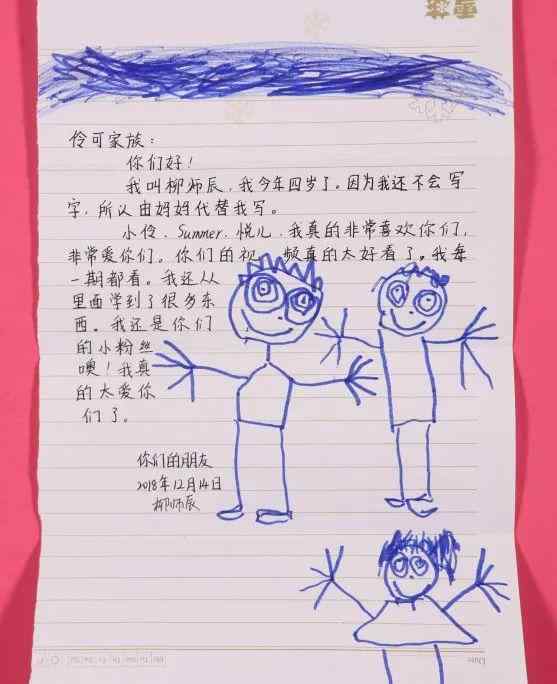 伶可家族：
你们好！
我叫柳师辰，我今年四岁了。因为我还不会写
字，所以由妈妈代替我写。
小伶、Summer、悦儿，我真的非常喜欢你们，
非常爱你们。你们的视频真的太好看了。我每
一期都看。我还从
里面学到了很多东
西。我还是你们
的小粉丝
噢！我真
的太爱你
们了。
你们的朋友
2018年12月14日
柳师辰